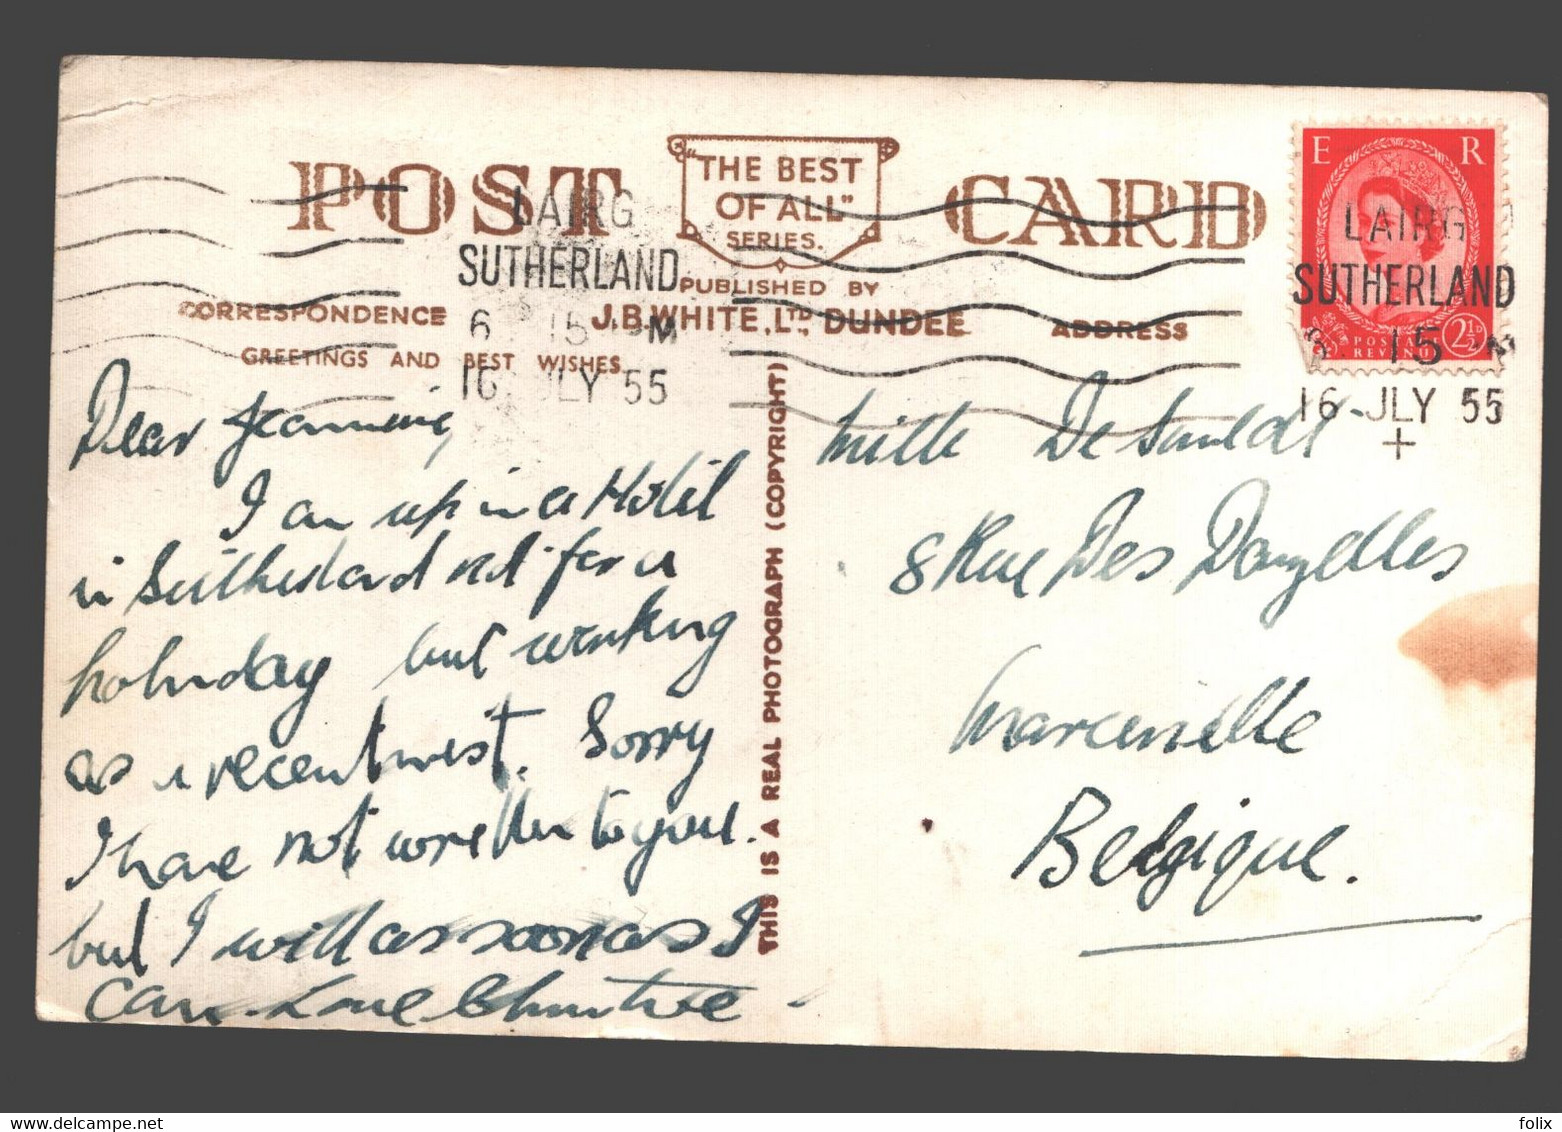 POST CARD
"THE BEST
OF ALL"
SERIES.
PUBLISHED BY
J.B. WHITE, LTD., DUNDEE
CORRESPONDENCE
ADDRESS
GREETINGS AND BEST WISHES
LAIRG
SUTHERLAND
6 15 PM
16 JLY 55
E R
POSTAGE
REVENUE
2½D
LAIRG
SUTHERLAND
15
16 JLY 55
+
Dear Jeannine,
I am up in a Hotel
in Sutherland not for a
holiday but working
as a receptionist. Sorry
I have not written to you.
but I will as soon as I
can. Love Christine
THIS IS A REAL PHOTOGRAPH (COPYRIGHT)
Mlle De
8 Rue Des
Marcinelle
Belgique.
folix